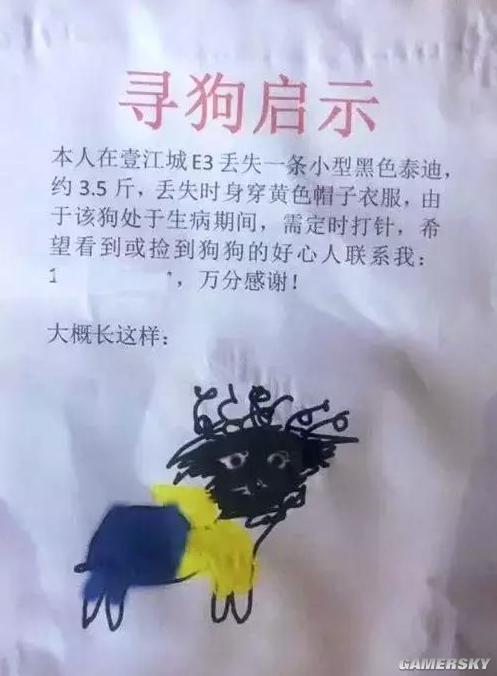 寻狗启示
本人在壹江城E3丢失一条小型黑色泰迪，
约3.5斤，丢失时身穿黄色帽子衣服，由
于该狗处于生病期间，需定时打针，希
望看到或捡到狗狗的好心人联系我：
1 ，万分感谢！
大概长这样：
GAMERSKY